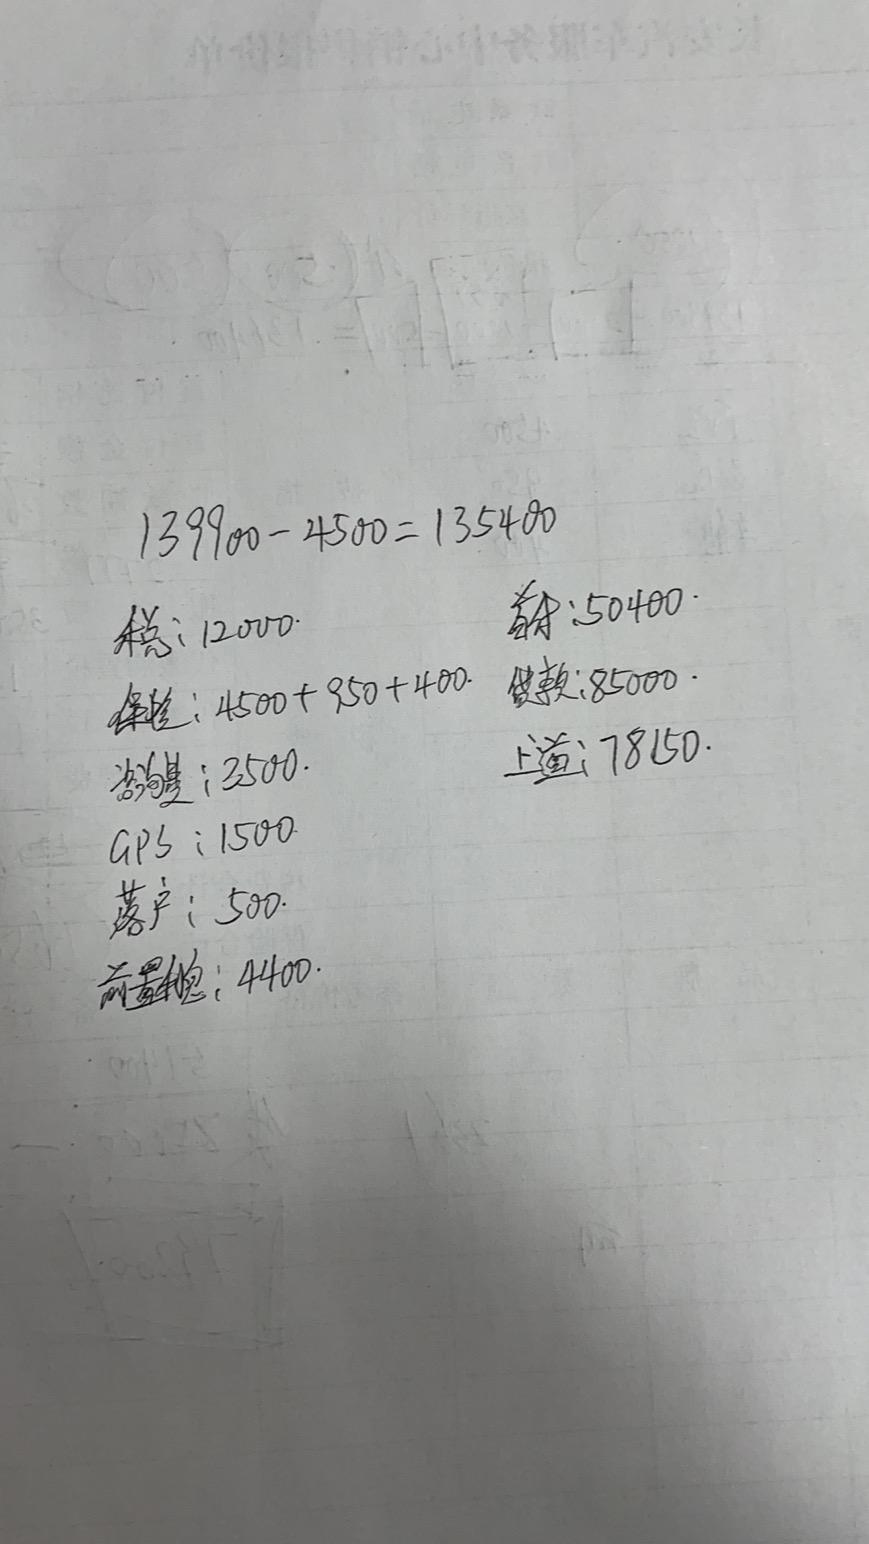 139900-4500=135400
税：12000.
首付：50400.
保险：4500+950+400.
贷款：85000.
咨询费：3500.
上道：78150.
GPS：1500.
落户：500.
前置利息：4400.